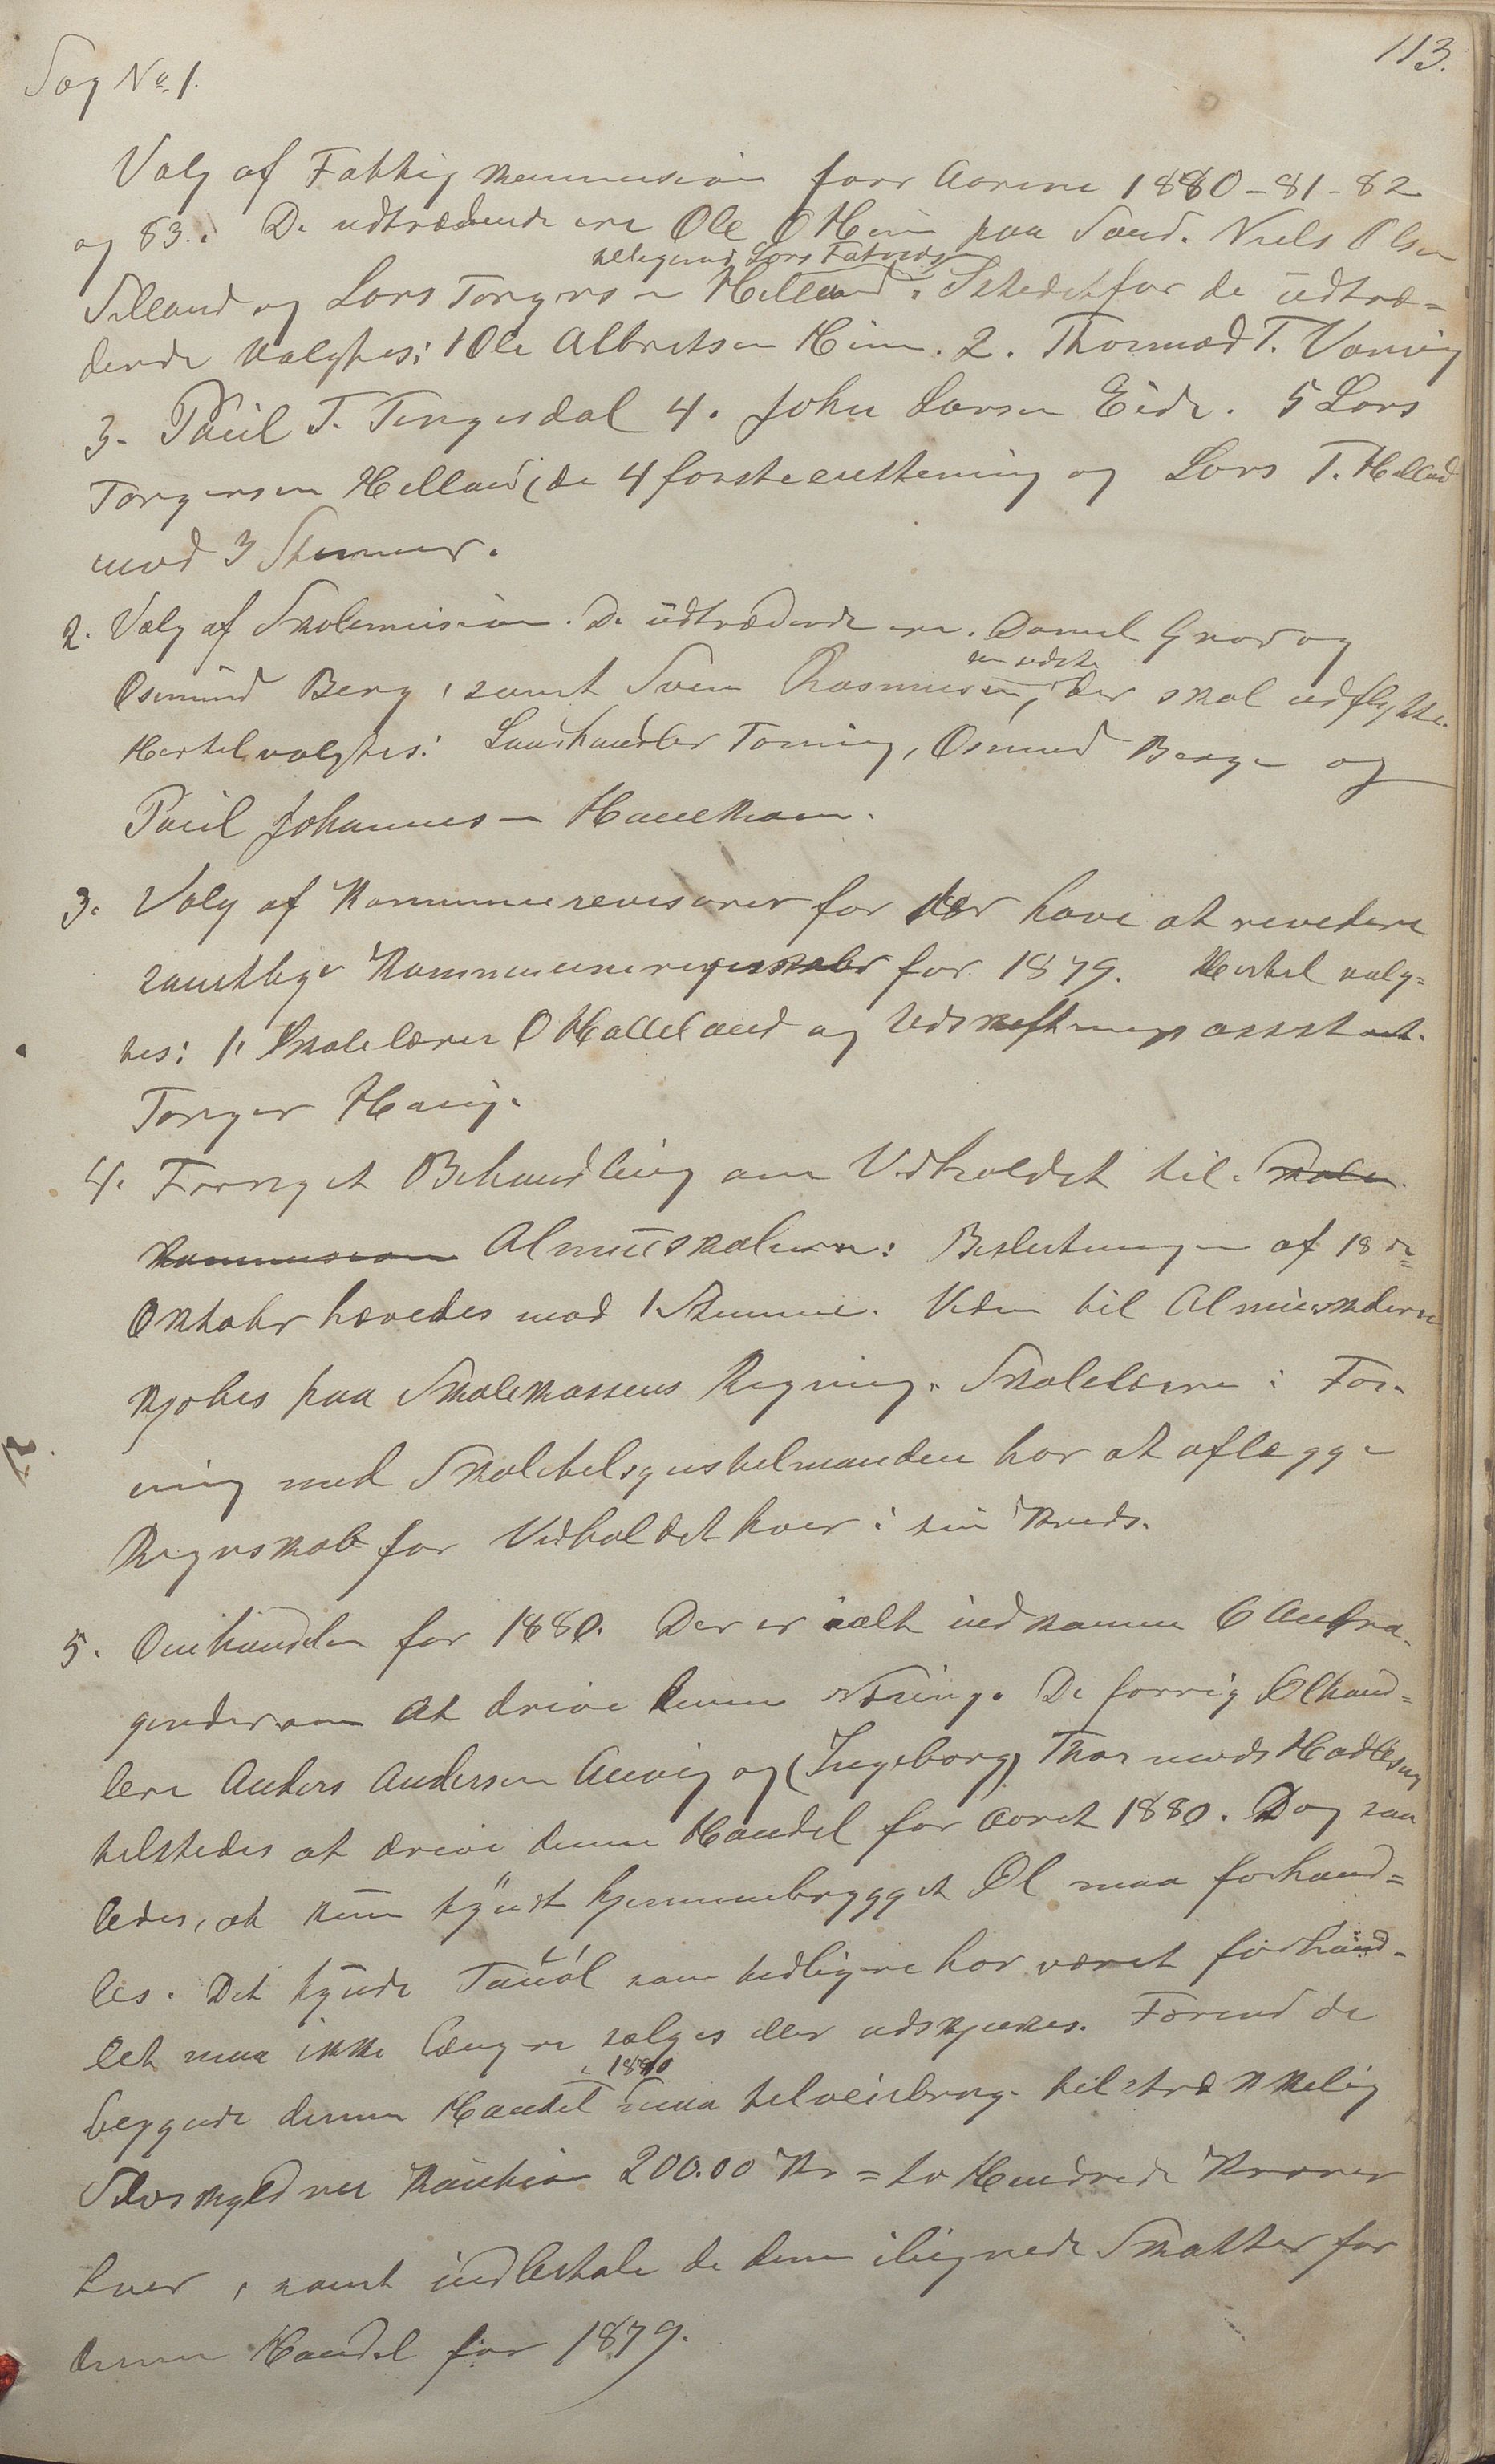 113.
Sag No. 1.
Valg af Fattigkommission for Aarene 1880-81-82
og 83. De udtrædende ere Ole O Hiim paa Sand. Niels Olsen
Lars
Silland og Lars Torgersen Helland. Istedetfor de udtræ=
dende valgtes: 1 Ole Albretsen Hiim. 2. Thormod T. Vanvig
3. Paul T. Tengesdal 4. John Larsen Eide. 5 Lars
Torgersen Helland (de 4 første enstemig og Lars T. Helland
mod 3 Stemmer.
2. Valg af Skolemision. De udtrædende ere. Daniel Grov og
den sidste
Osmund Berg, samt Sven Rasmusen, der skal udflytte.
Hertil valgtes: Landhandler Toning, Osmund Berge og
Paul Johannesen Haukham.
3. Valg af Kommunerevisorer for der have at revidere
samtlige Kommuneregnskaber for 1879. Hertil valg=
tes: 1. Skolelærer O Halleland og Udskiftningsassistent
Torger Haug.
4. Fornyet Behandling om Vedholdet til Skole
kommission Almueskolerne: Beslutningen af 18de
Oktober hævedes mod 1 Stemme. Veden til Almueskolerne
kjøbes paa Skolekassens Regning. Skolelæren i For.
ning med Skoletilsynstelmanden har at aflægge
Regnskab for Vedholdet hver i sin Kreds.
5. Omhandlen for 1880. Der er ialt indkomne 6 Andra.
gender om at drive denne Næring. De forrig Ølhand=
lere Anders Andersen Auvig og (Ingeborg) Thormods
tilstedes at drive denne Handel for Aaret 1880. Dog saa
ledes, at kun tyndt hjemmebrygget Øl maa forhand=
les. Det tynde Tauøl som tidligere har været forhand-
let maa ikke længere sælges eller udskjænkes. Forend de
i 1880
beggynde denne Handel maa tilveiebringe tilstrækkelig
Selvskyldner Kaution 200.00 Kr = to Hundrede Kroner
hver, samt indbetale de dem ilignede Skatter for
denne Handel for 1879.